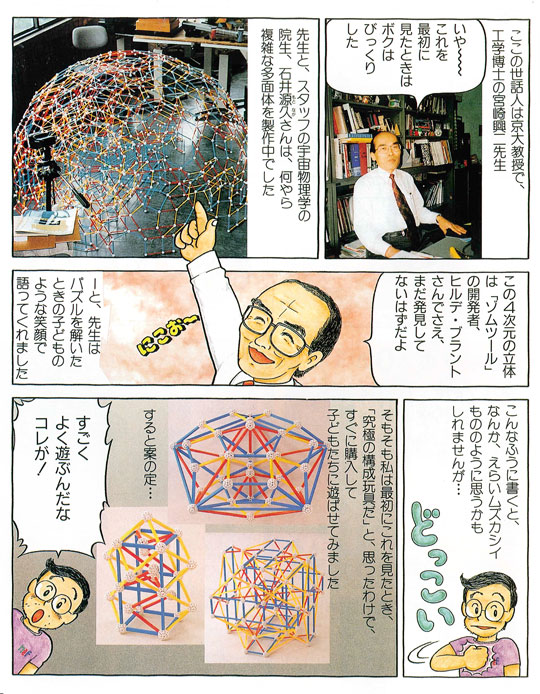 ここの世話人は京大教授で、
工学博士の宮崎興二先生
いや〜〜
これを
最初に
見たときは
ボクは
びっくり
した
先生と、スタッフの宇宙物理学の
院生、石井源久さんは、何やら
複雑な多面体を製作中でした
この4次元の立体
は「ゾムツール」
の開発者、
ヒルデ・ブラント
さんでさえ、
まだ発見して
ないはずだよ
にこお〜
ーと、先生は
パズルを解いた
ときの子どもの
ような笑顔で
語ってくれました
こんなふうに書くと、
なんか、えらいムズカシイ
もののように思うかも
しれませんが…
どっこい
そもそも私は最初にこれを見たとき、
「究極の構成玩具だ」と、思ったわけで、
すぐに購入して
子どもたちに遊ばせてみました
すると案の定…
すごく
よく遊ぶんだな
コレが!